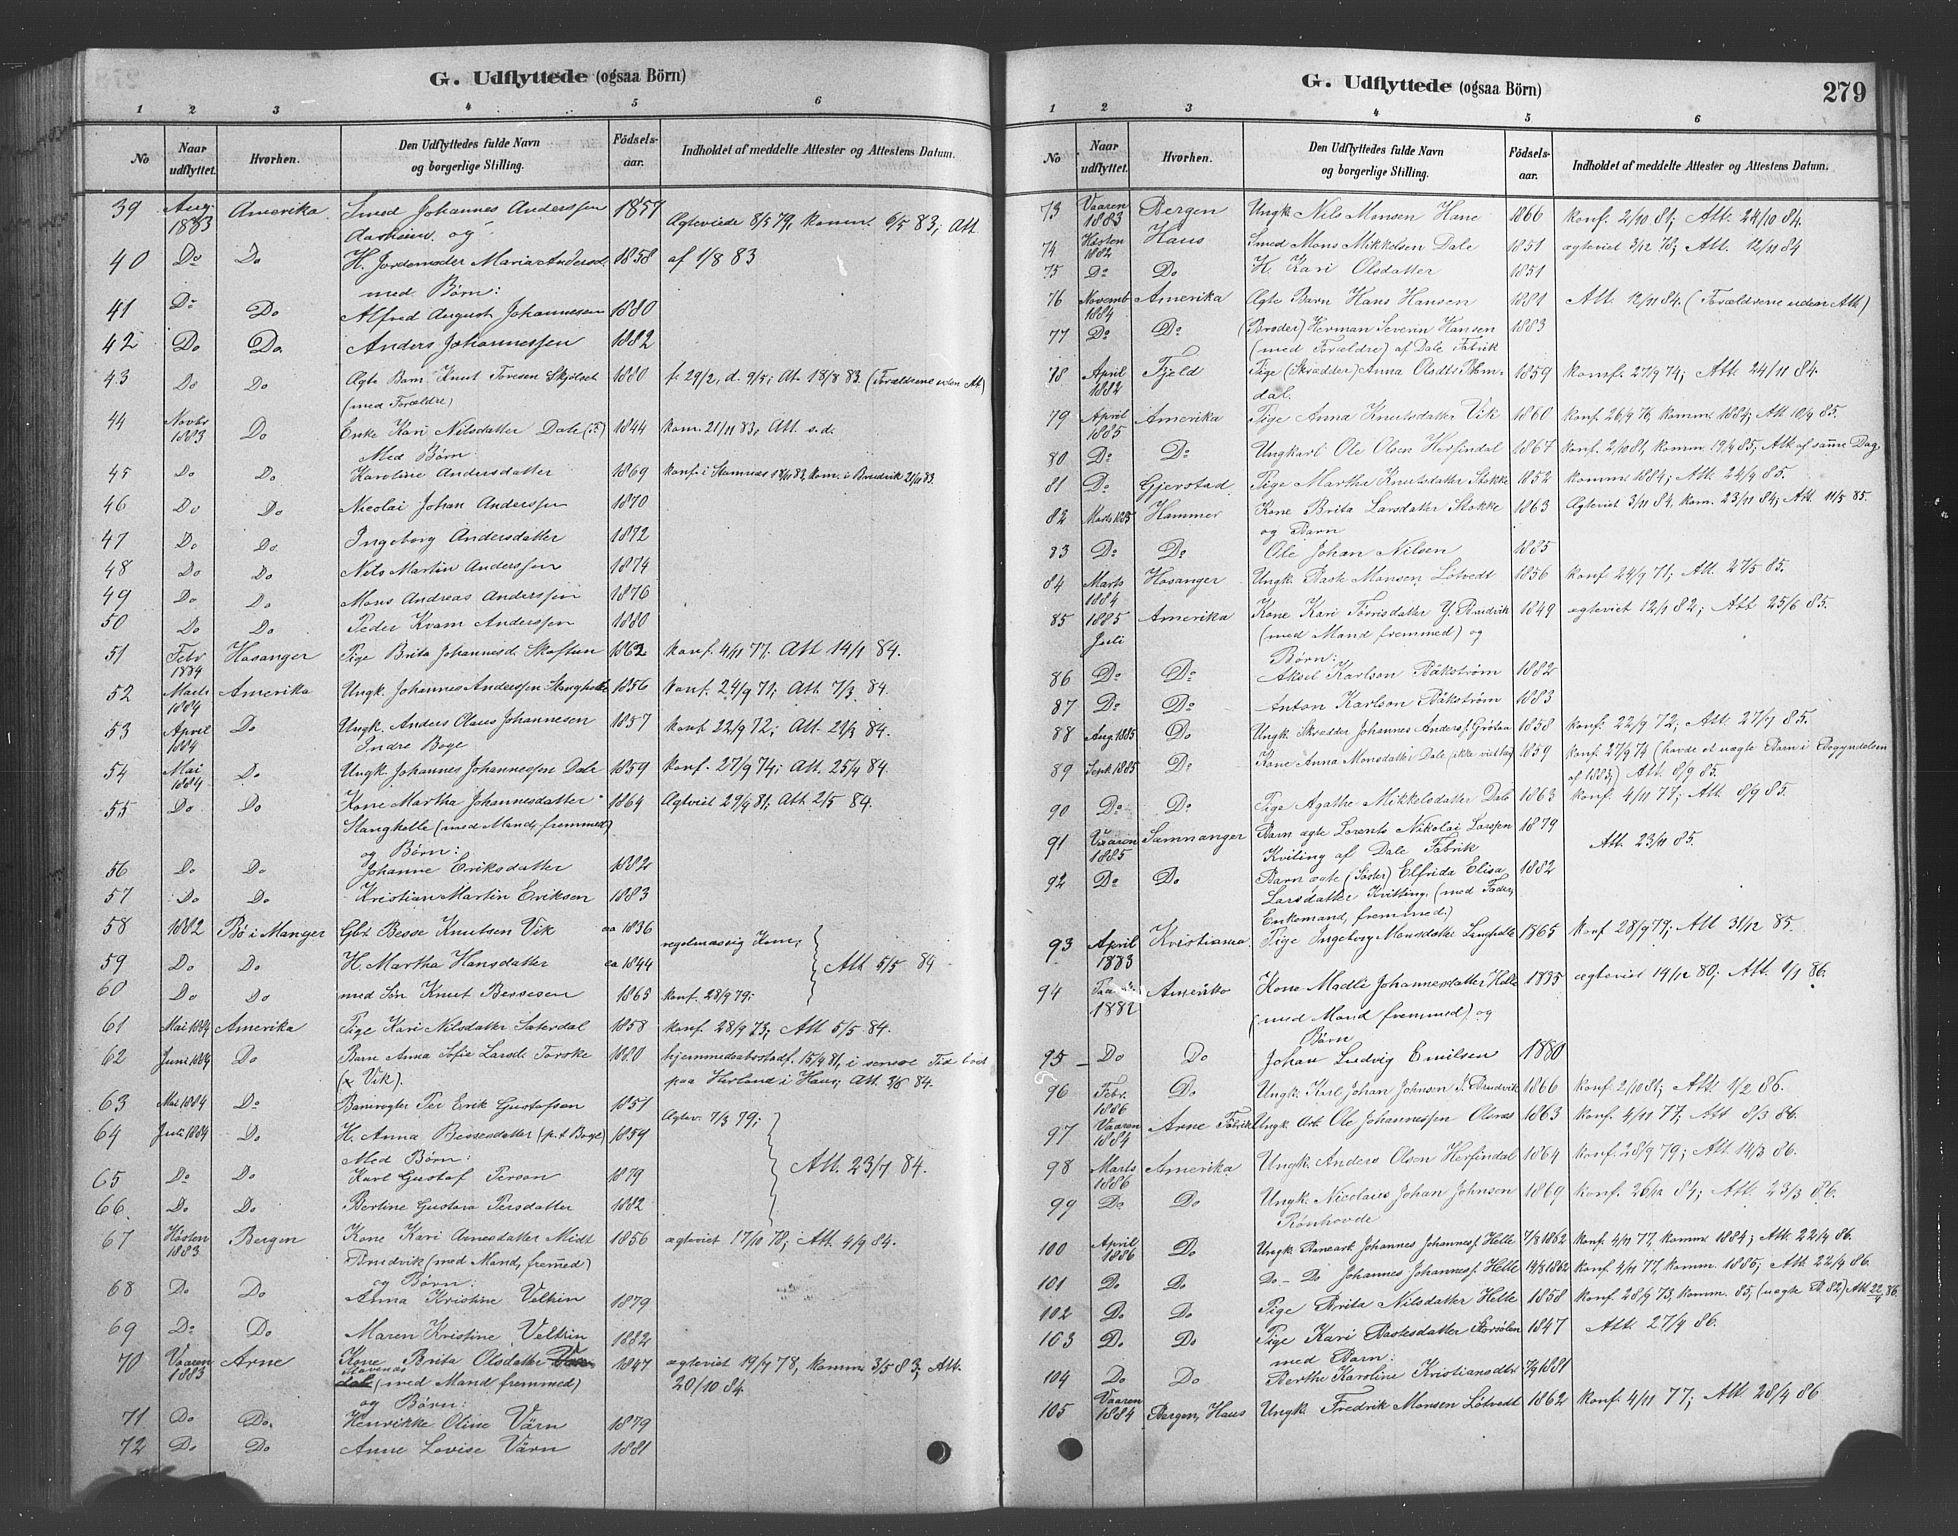 G. Udflyttede (ogsaa Börn)
1 2 3 4 5 6
No Naar udflyttet. Hvorhen. Den Udflyttedes fulde Navn og borgerlige Stilling. Födsels-aar. Indholdet af meddelte Attester og Attestens Datum.
39 Aug. 1883 Amerika Smed Johannes Anderssen 1857 Ægteviede 8/5 79, komm. 6/5 83; Att.
og
40 Do Do H. Jordemoder Maria Andersd. 1858 af 1/8 83
med Børn:
41 Do Do Alfred August Johannesen 1880
42 Do Do. Anders Johannessen 1882
43 Do Do Ægte Barn Knut Toresen 1880 f. 29/2, d. 9/5; At. 18/8 83. (Forældrene uden At)
(med Forældre)
44 Novbr 1883 Do Enke Kari Nilsdatter Dale 1844 kom. 21/11 83; Att. s.d.
Med Børn:
45 Do Do Karoline Andersdatter 1869 konf. i Stamnæs 83, kom. i Brudvik 21/11 83.
46 Do Do Nicolai Johan Anderssen 1870
47 Do Do. Ingeborg Andersdatter 1872
48 Do Do Nils Martin Anderssen 1874
49 Do Do Mons Andreas Anderssen 1876
50 Do Do Peder Kvam Anderssen 1880
51 Febr 1884 Hosanger Pige Brita Johannesd. Skoftun 1862 konf. 4/11 77; Att 14/1 84.
52 Marts 1884 Amerika Ungk. Johannes Anderssen Stanghelle 1856 konf. 24/9 71; Att. 7/3 84.
53 April 1884 Do Ungk. Anders Olaus Johannesen 1857 konf. 22/9 72; Att. 29/3 84.
Indre Boge
54 Mai 1884 Do Ungk. Johannes Johannessen Dale 1859 konf. 27/9 74; Att. 25/4 84.
55 Do Do Kone Martha Johannesdatter 1864 Ægteviet 29/4 81. Att. 2/5 84.
Stanghelle (med Mand, fremmed)
og Børn:
56 Do Do Johanne Eriksdatter 1882
57 Do Do Kristian Martin Eriksen 1883
58 1882 Bø i Manger Gbr Besse Knutsen Vik ca 1836 regelmæssig Kom;
59 Do Do H. Martha Hansdatter ca 1844 Att 5/5 84
60 Do Do med Søn Knut Bessesen 1865 konf. 28/9 79;
61 Mai 1884 Amerika Pige Kari Nilsdatter Saterdal 1858 konf. 28/9 73; Att 5/5 84.
62 Juni 1884 Do Barn Anna Sofie Larsdr Torske 1880 hjemmedøbt stadf. 15/4 81, i senere Tid bodt
Vik). paa Herland i Haus; Att. 84.
63 Mai 1884 Do Banevogter Per Erik Gustafsen 1851 Ægtev. 7/3 79;
64 Juli 1884 Do H. Anna Bessesdatter (p.t Boge) 1859
Med Børn: Att. 23/7 84.
65 Do Do Karl Gustaf Person 1879
66. Do Do Bertine Gustava Persdatter 1882
67 Høsten 1883 Bergen Kone Kari Arnesdatter Midt 1856 ægteviet 17/10 78; Att. 4/9 84.
Brudvik (med Mand, fremmed)
og Børn:
68 Do Do Anna Kristine Veltzin 1879
69 Do Do Maren Kristine Veltzin 1882
70 Vaaren 1883 Arne Kone Brita Olsdatter 1847 ægteviet 19/7 78, komm. 3/5 83; Att.
(med Mand fremmed) 20/10 84.
og Børn:
71 Do Do. Henrikke Oline Värn 1879
72 Do Do Anne Lovise Värn 1881
G. Udflyttede (ogsaa Börn) 279
1 2 3 4 5 6
No Naar udflyttet. Hvorhen. Den Udflyttedes fulde Navn og borgerlige Stilling. Födsels-aar. Indholdet af meddelte Attester og Attestens Datum.
73 Vaaren 1883 Bergen Ungk. Nils Monsen Hane 1866 konf. 2/10 81; Att. 24/10 84.
74 Høsten 1882 Haus Smed Mons Mikkelsen Dale 1851 ægteviet 3/12 76; Att. 12/11 84
75 Do Do H. Kari Olsdatter 1851
76 Novemb 1884 Amerika Ægte Barn Hans Hansen 1881 Att. 12/11 84. (Forældrene uden Att)
77 Do Do (Broder) Herman Severin Hansen 1883
(med Forældre) af Dale Fabrik
78 April 1882 Fjeld Pige (Skrædder) Anna Olsdtr 1859 konf. 27/9 74; Att. 24/11 84.
dal.
79 April 1885 Amerika Pige Anna Knutsdatter Vik 1860 konf. 26/9 76, komm. 1884; Att. 10/4 85.
80 Do Do Ungkarl Ole Olsen Herfindal 1867 konf. 2/10 81, komm. 19/4 85; Att af samme Dag
81 Do Gjerstad Pige Marthe Knutsdatter Stokke 1852 komm. 1884; Att. 24/4 85.
82 Marts 1885 Hammer Kone Brita Larsdatter Stokke 1863 Ægteviet 3/11 84, kom. 23/11 84; Att. 11/5 85.
og Barn
83 Do Do Ole Johan Nilsen 1885
84 Marts 1884 Hosanger Ungk. Monsen Løtvedt 1856 konf. 24/9 71; Att. 27/5 85.
85 1885 Juli Amerika Kone Kari Tørrisdatter Y. Brudvik 1849 ægteviet 12/1 82; Att 25/6 85.
(med Mand fremmed) og
Børn:
86 Do Do Aksel Karlsen Bäkström 1882
87 Do Do Anton Karlson Bäkström 1883
88 Aug. 1885 Do Ungk. Skrædder Johannes Anders. 1858 konf. 22/9 72; Att. 27/7 85.
89 Sept. 1885 Do Kone Anna Monsdatter Dale (ikke viet) 1859 konf. 27/9 74 (havde et uægte Barn i Begyndelsen
af 1885) Att. 8/9 85.
90 Do Do Pige Agathe Mikkelsdatter Dale 1863 konf. 4/11 77; Att. 8/9 85.
91 Vaaren 1885 Samnanger Barn ægte Lorents Nikolai Larssen 1879 Att. 23/11 85.
Kvitting af Dale Fabrik
92 Do Do Barn ægte (Søster) Elfrida Elisa 1882
Larsdatter Kvitting. (med Fader,
Enkemand, fremmed.)
93 April 1883 Kristiania Pige Ingeborg Monsdatter Langhelle 1865 konf 28/9 79; Att 31/12 85.
94 1882 Amerika Kone Madli Johannesdatter Helle 1835 ægteviet 19/12 80; Att. 1/1 86.
(med Mand fremmed) og
Børn
95 Do Do Johan Ludvig Emilsen 1880
96 Febr. 1886 Do Ungk. Karl Johan Johnsen I. Brudvik 1866 konf. 2/10 81; Att. 1/2 86.
97 Vaaren 1884 Arne Fabrik Ungk. Arb. Ole Johannessen Olsnæs 1863 konf. 4/11 77; Att 8/3 86.
98 Marts 1886 Amerika Ungk. Anders Olsen Herfindal 1864 konf. 28/9 79; Att 14/3 86.
99 Do Do Ungk. Nicolaus Johan Johnson 1869 konf. 84; Att. 23/3 86.
Rønhovde
100 April 1886 Do Ungk. Johannes Johannes. Helle 7/3 1862 konf. 4/11 77, komm. 1884; Att. 22/4 86.
101 Do Do Do - Do Johannes Johannes. Helle 1862 konf. 4/11 77, komm. 1885; Att 22/4 86.
102 Do Do Pige Brita Nilsdatter Helle 1858 konf. 28/9 73, komm. 85; (uægte B. 82) Att 22/4 86.
103 Do Do Pige Kari 1847 Att. 27/4 86.
med Barn:
104 Do Do Berthe Karoline Kristiansdtr 1881
105 Vaaren 1884 Bergen, Haus Ungk. Fredrik Monsen Løtvedt 1862 konf. 4/11 77; Att 28/4 86